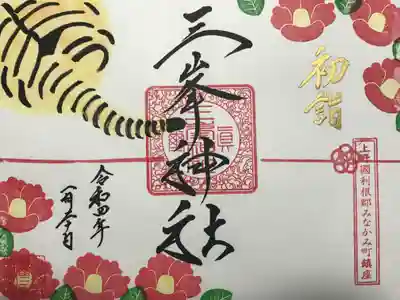 初詣
上野國利根郡みなかみ町鎮座
三峯神社
令和四年